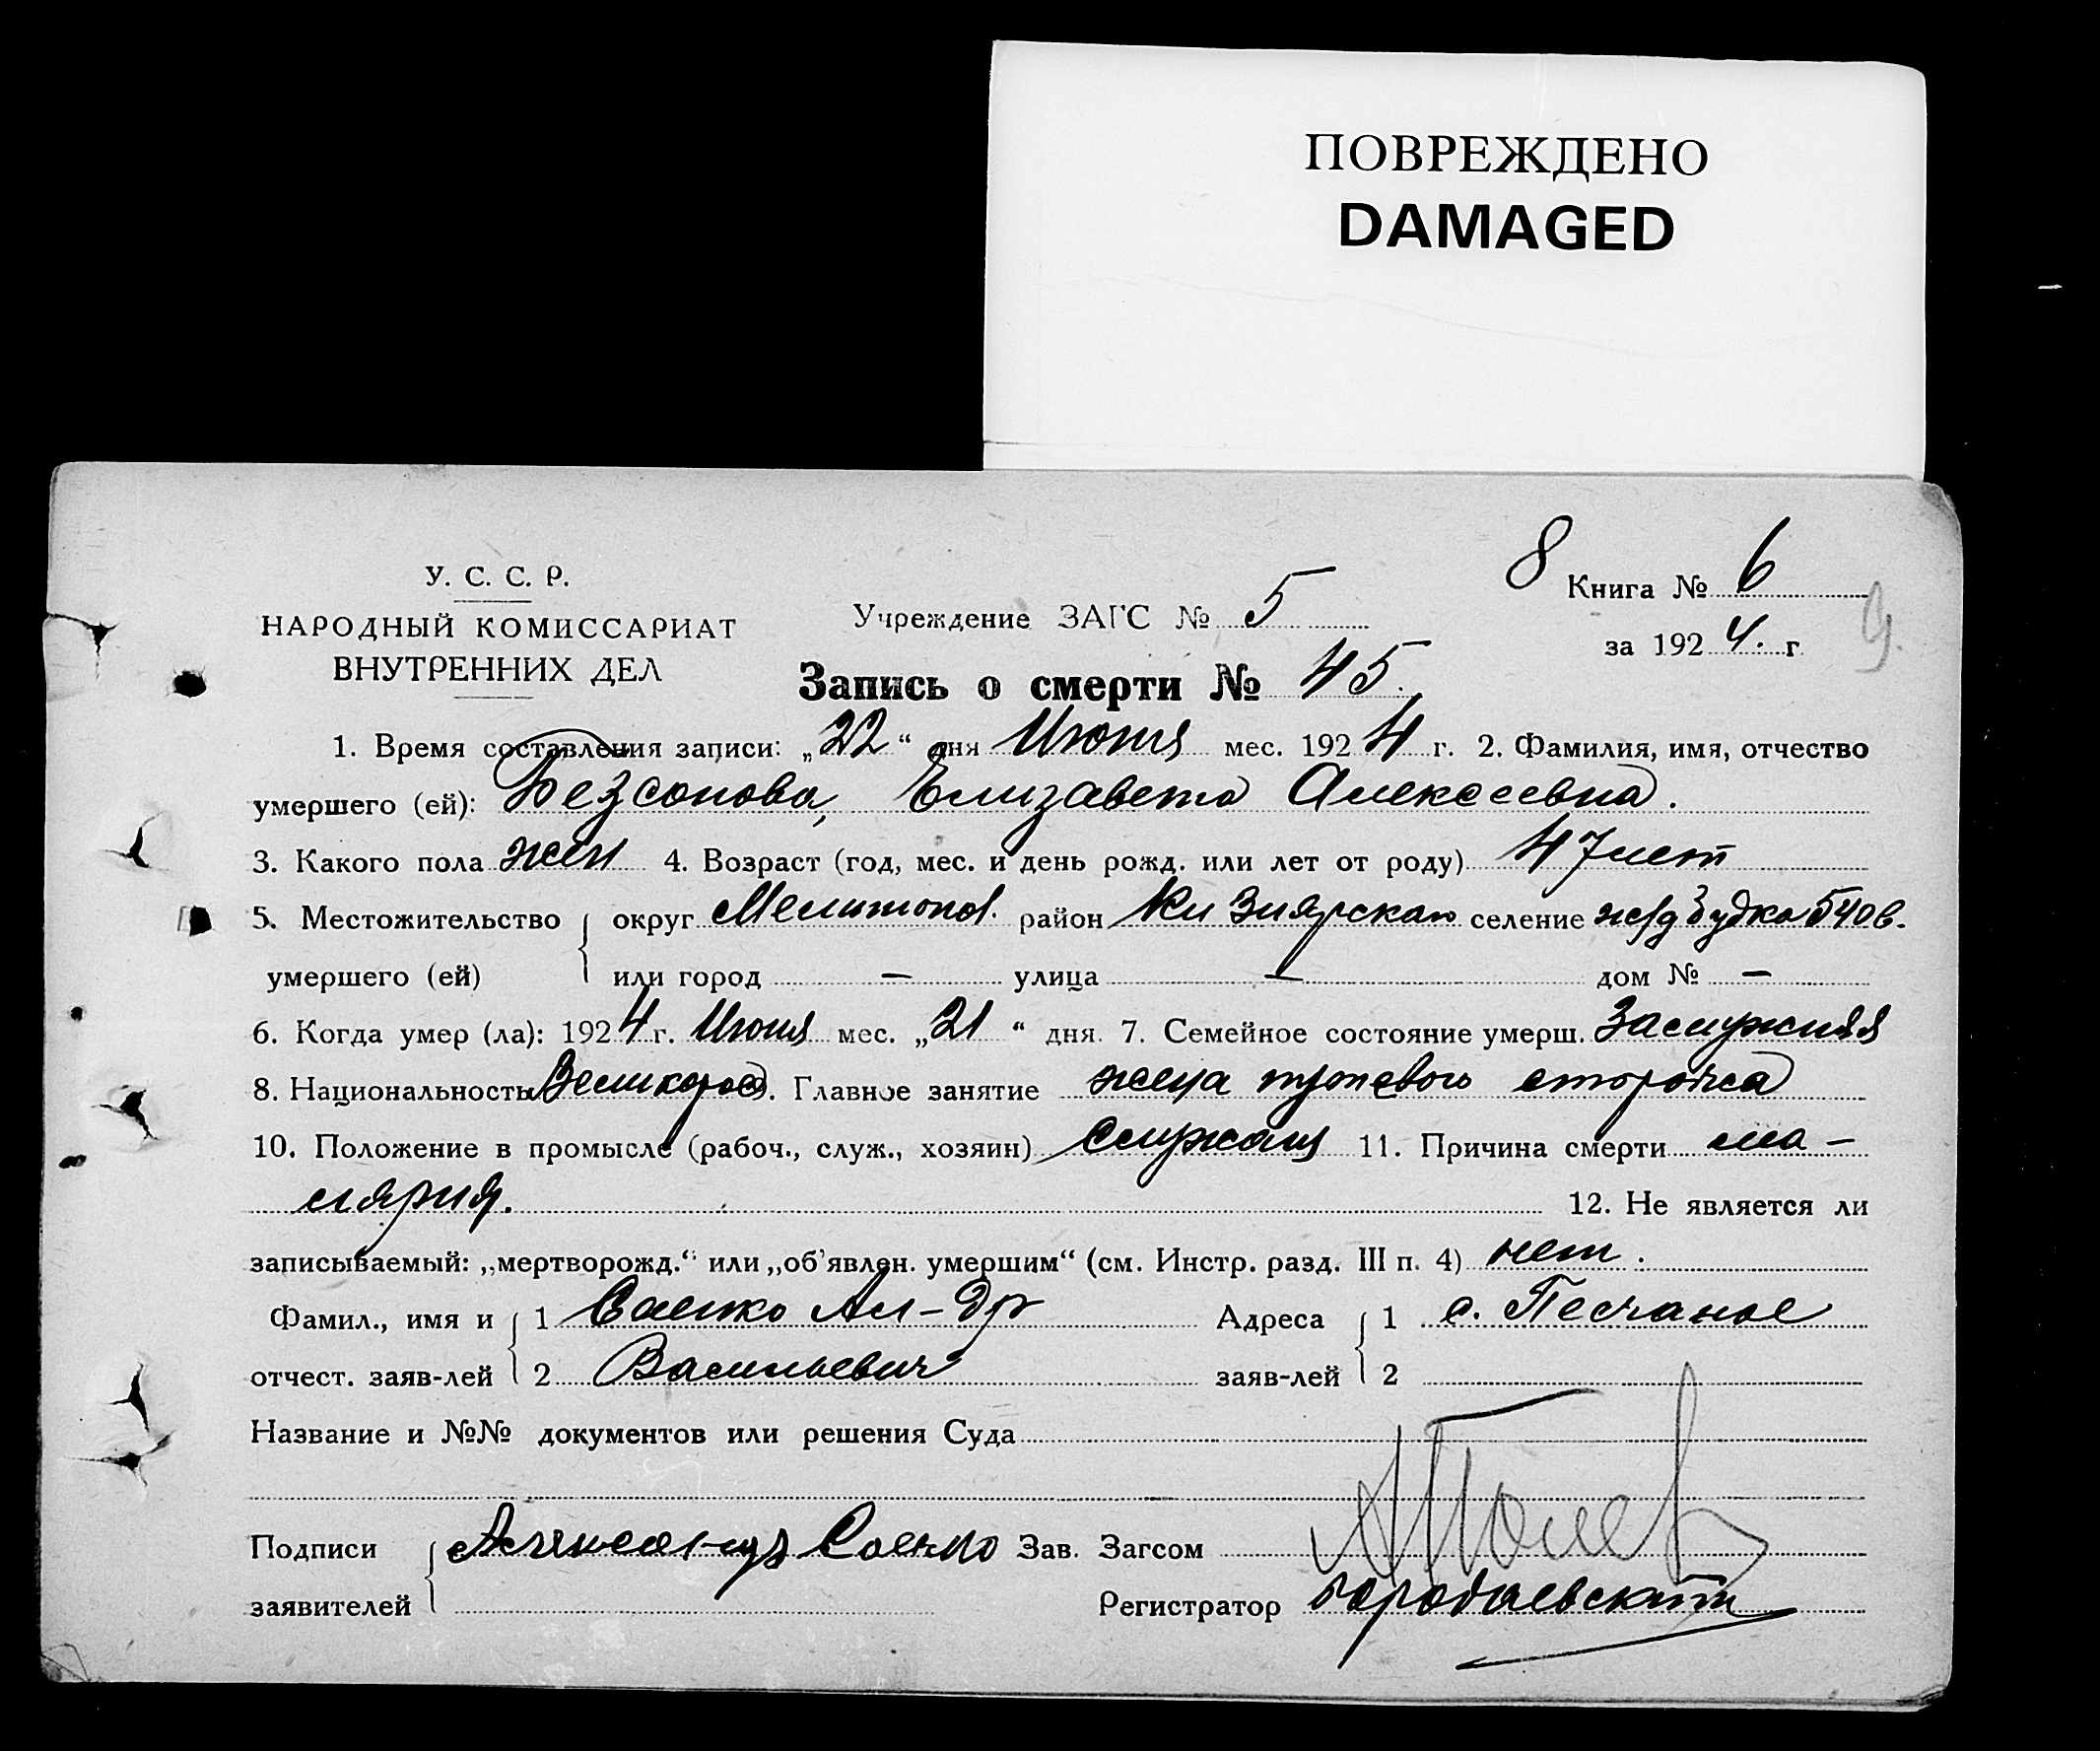 ПОВРЕЖДЕНО
DAMAGED
8 Книга № 6
за 1924. г.
9.
У. С. С. Р.
НАРОДНЫЙ КОМИССАРИАТ
ВНУТРЕННИХ ДЕЛ
Учреждение ЗАГС № 5
Запись о смерти № 45.
1. Время составления записи: „22“ дня Июня мес. 1924 г. 2. Фамилия, имя, отчество
умершего (ей): Безсонова, Елизавета Алексеевна.
3. Какого пола жен 4. Возраст (год, мес. и день рожд. или лет от роду) 47 лет
5. Местожительство округ Мелитопол. район Кизиярскаго селение ж/д будка 540в.
умершего (ей) или город — улица — дом № —
6. Когда умер (ла): 1924 г. Июня мес. „21“ дня. 7. Семейное состояние умерш. Замужняя
8. Национальность Великорос. Главное занятие жена путевого сторожа
10. Положение в промысле (рабоч., служ., хозяин) служащ 11. Причина смерти ма-
лярия. 12. Не является ли
записываемый: „мертворожд.“ или „об'явлен. умершим“ (см. Инстр. разд. III п. 4) нет.
Фамил., имя и 1 Саенко Ал-др Адреса 1 с. Песчаное
отчест. заяв-лей 2 Васильевич заяв-лей 2
Название и №№ документов или решения Суда
Подписи Александр Саенко Зав. Загсом
заявителей Регистратор